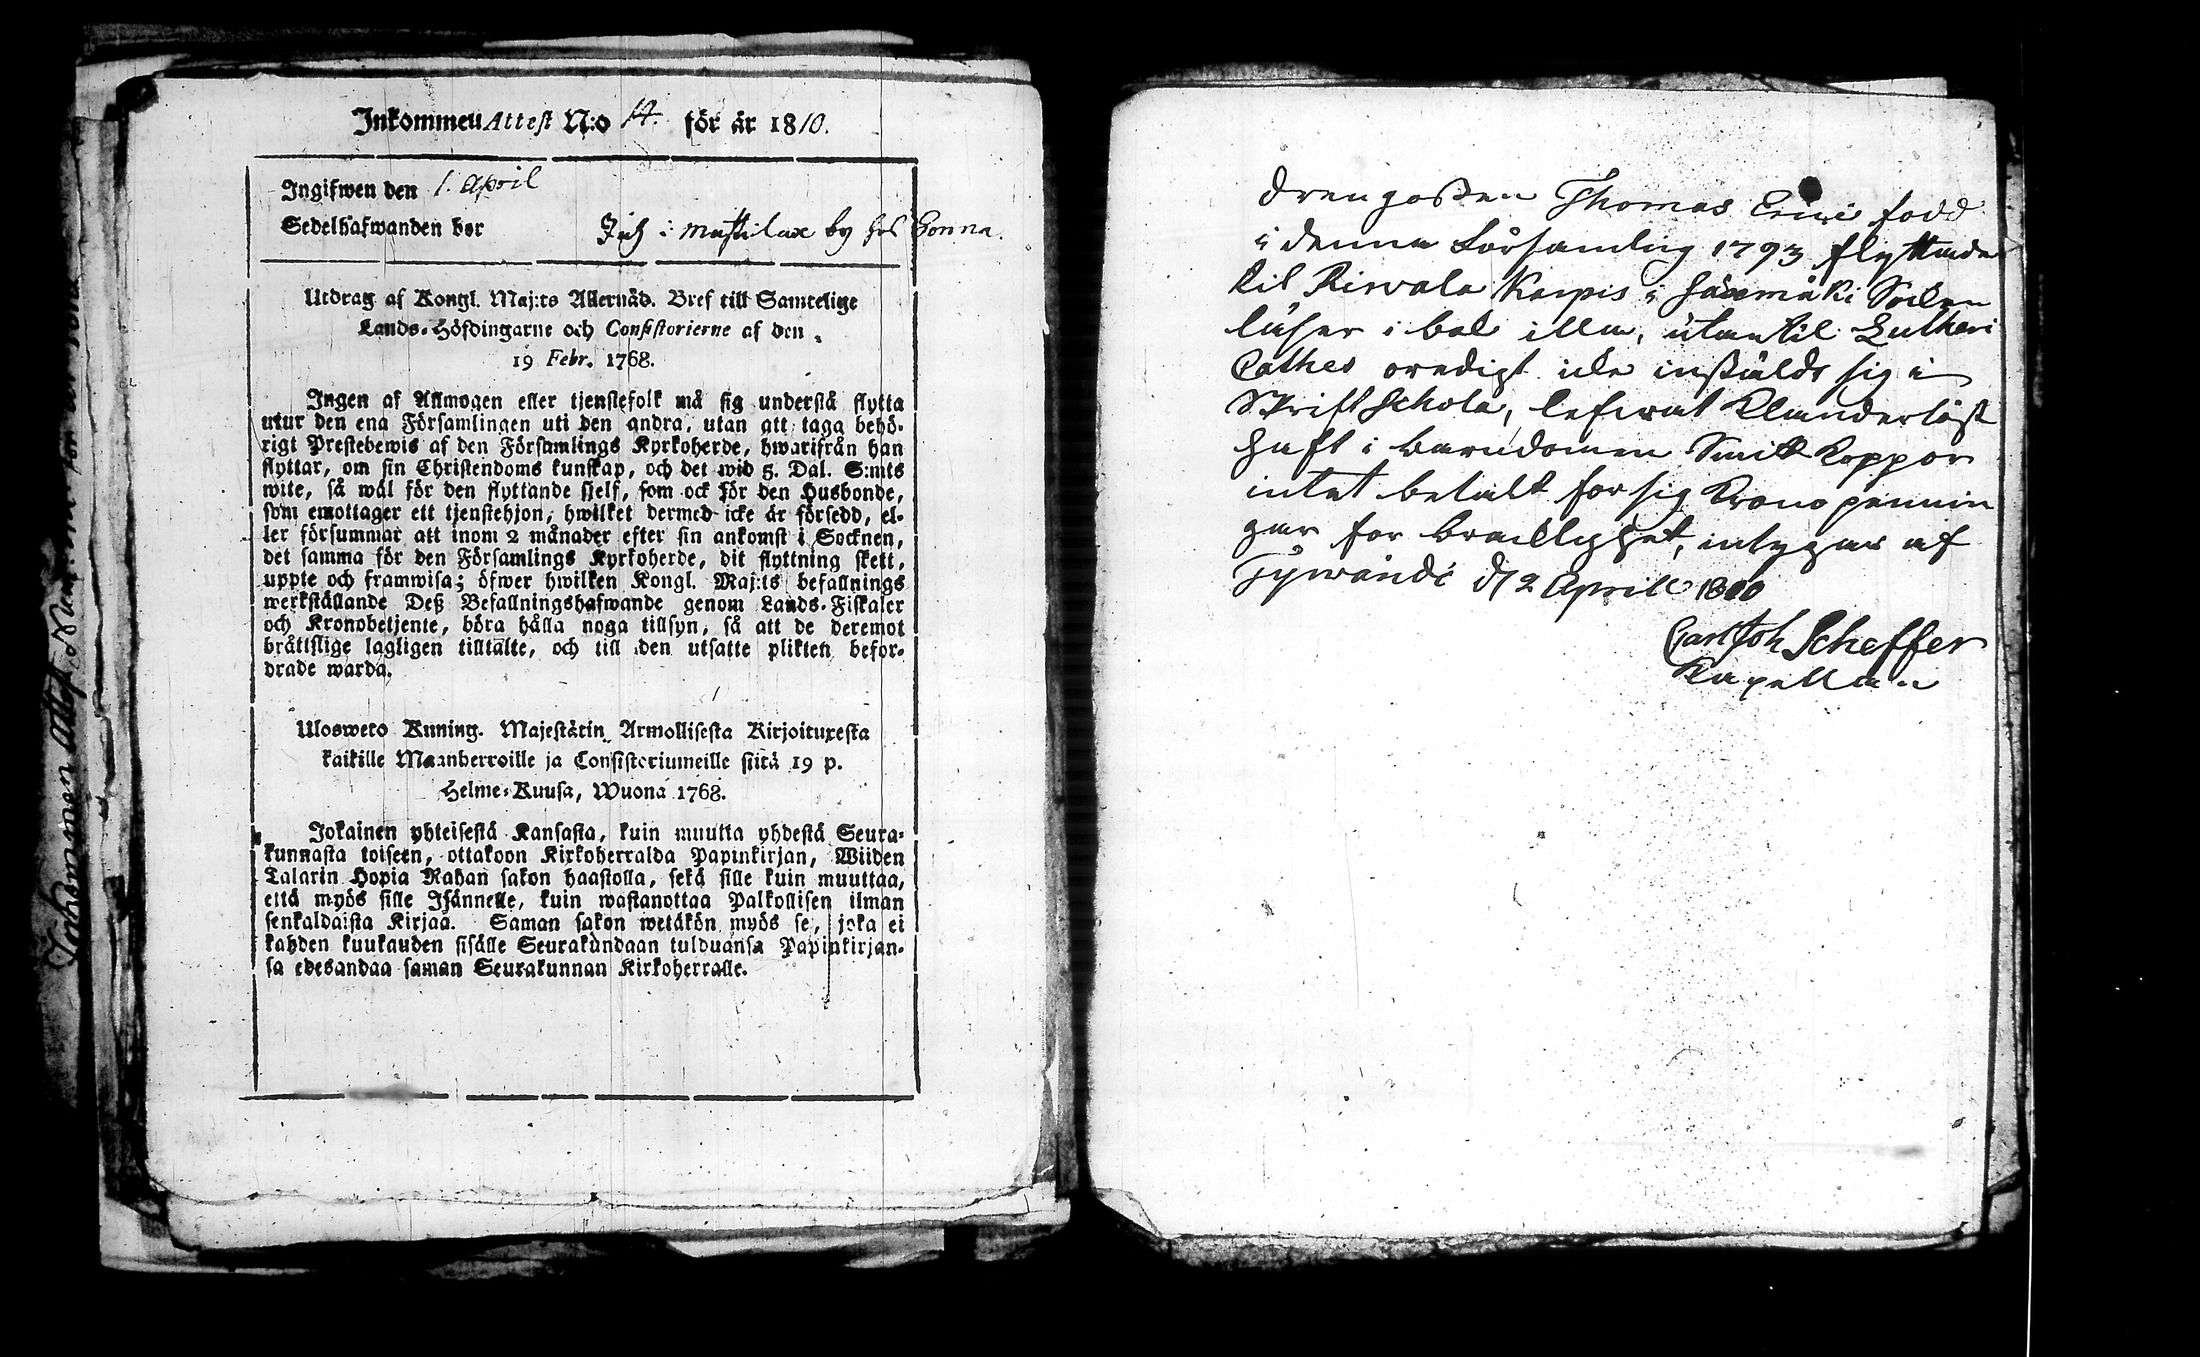 Inkommen Attest N:o 14. för år 1810.
Ingifwen den 1. April
Sedelhafwanden bor i mattilax by hos Gonna.
Utdrag af Kongl. Maj:ts Allernåd. Bref till Samtelige
Lands-Höfdingarne och Consistorierne af den
19 Febr. 1768.
Ingen af Allmogen eller tjenstefolk må sig understå flytta
utur den ena Församlingen uti den andra, utan att taga behö-
rigt Prestebewis af den Församlings Kyrkoherde, hwarifrån han
flyttar, om sin Christendoms kunskap, och det wid 5. Dal. S:mts
wite, så wäl för den flyttande sjelf, som ock för den Husbonde,
som emottager ett tjenstehjon, hwilket dermed icke är försedd, el-
ler försummar att inom 2 månader efter sin ankomst i Socknen,
det samma för den Församlings Kyrkoherde, dit flyttning skett,
uppte och framwisa; öfwer hwilken Kongl. Maj:ts befallnings
werkställande Deß Befallningshafwande genom Lands-Fiskaler
och Kronobetjente, böra hålla noga tillsyn, så att de deremot
bråttslige lagligen tilltalte, och till den utsatte plikten befor-
drade warda.
Ulosweto Kuning. Majestätin Armollisesta Kirjoituxesta
kaikille Maanherroille ja Consistoriumeille siitä 19 p.
Helme-Kuusa, Wuona 1768.
Jokainen yhteisestä Kansasta, kuin muutta yhdestä Seura-
kunnasta toiseen, ottakoon Kirkoherralda Papinkirjan, Wiiden
Talarin Hopia Rahan sakon haastolla, sekä sille kuin muuttaa,
että myös sille Isännelle, kuin wastanottaa Palkollisen ilman
senkaldaista Kirjaa. Saman sakon wetäkön myös se, joka ei
kahden kuukauden sisälle Seurakundaan tulduansa Papinkirjan-
sa edesandaa saman Seurakunnan Kirkoherralle.
drengoßen Thomas född
i denna Församling 1793 flyttande
til Rirvala Karpis i Socken
läser i bok illa, utantil Lutheri
Cathes oredigt icke instäldt sig i
Skrift Schola, lefwat Klanderlöst
haft i barndomen Smitt Koppor
intet betalt for sig Krono pennin
gar for bräcklighet, intygas af
d 2 April 1810
Carl Joh Scheffer
Kapellan